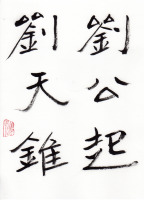 劉公起
劉天錐